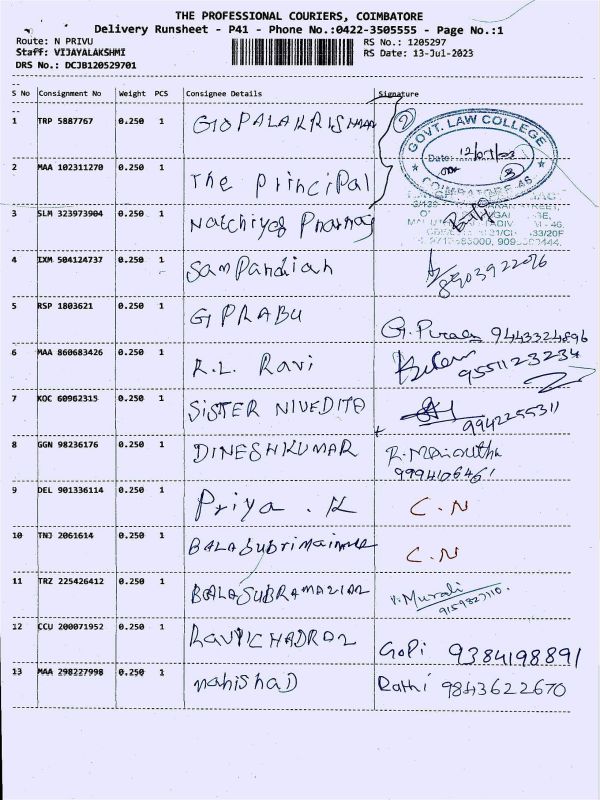 THE PROFESSIONAL COURIERS, COIMBATORE
Delivery Runsheet - P41 - Phone No.:0422-3505555 - Page No.:1
Route: N PRIVU RS No.: 1205297
Staff: VIJAYALAKSHMI RS Date: 13-Jul-2023
DRS No.: DCJB120529701
S No Consignment No Weight PCS Consignee Details Signature
1 TRP 5887767 0.250 1 GOPALAKRISHNAN 2
GOVT. LAW COLLEGE
Date: 12/07/23
COIMBATORE-46
2 MAA 102311270 0.250 1 The Principal
3 SLM 323973904 0.250 1 Natchiyar
4 IXM 504124737 0.250 1 Sampandiah 8903922096
5 RSP 1803621 0.250 1 G PRABU 9443324896
6 MAA 860683426 0.250 1 R.L. Ravi 9551123234
7 KOC 60962315 0.250 1 SISTER NIVEDITA 9942255311
8 GGN 98236176 0.250 1 DINESHKUMAR 9994106461
9 DEL 901336114 0.250 1 Priya . K C.N
10 TNJ 2061614 0.250 1 C.N
11 TRZ 225426412 0.250 1 BALASUBRAMANIAN V. Murali
12 CCU 200071952 0.250 1 Gopi 9384198891
13 MAA 298227998 0.250 1 mahishaD Rathi 9843622670